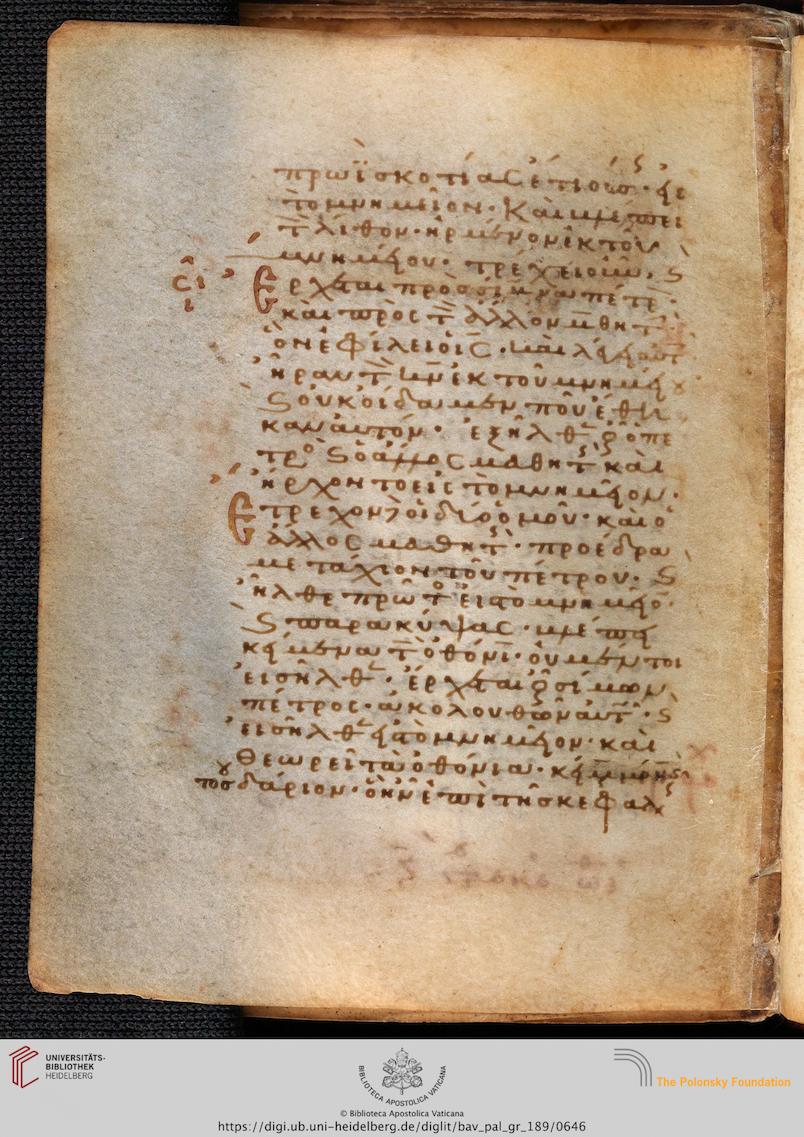 πρωῒ σκοτίας ἔτι οὔσης· εἰς
τὸ μνημεῖον· Καὶ βλέπει
τ̄ λίθον· ἠρμένον ἐκ τοῦ
μνημείου. τρέχει οὖν, ϛ
Ερχεται πρὸς σίμωνα πέτρ
καὶ πρὸς τ̄ ἄλλον μαθητ
ὃν ἐφίλει ὁ ις̄· καὶ λέγει αὐτ
ἦραν τ̄ κν̄ ἐκ τοῦ μνημείου
ϛ οὐκ οἴδαμεν ποῦ ἔθη
καν αὐτόν· ἐξῆλθ οὖν ὁ πε
τρο ϛ ὁ ἄλλος μαθητ καὶ
ἤρχοντο εἰς τὸ μνημεῖον.
Ετρεχον δὲ οἱ δύο ὁμοῦ· καὶ ὁ
ἄλλος μαθητ· προέδρα
με τάχιον τοῦ πέτρου. ϛ
ἦλθε πρῶτο εἰς τὸ μνημεῖο·
ϛ παρακύψας· βλέπει
κείμενα τ̄ ὀθόνι· οὐ μέντοι
εἰσῆλθ· ἔρχεται οὖν σίμων
πέτρος· ἀκολουθῶν αὐτ· ϛ
εἰσῆλθ εἰς τὸ μνημεῖον· καὶ
Θεωρεῖ τὰ ὀθόνια· κείμενα
τὸ σουδάριον· ὃ ἦν ἐπὶ τῆς κεφαλ
UNIVERSITÄTS-
BIBLIOTHEK
HEIDELBERG
BIBLIOTHECA APOSTOLICA VATICANA
The Polonsky Foundation
© Biblioteca Apostolica Vaticana
https://digi.ub.uni-heidelberg.de/diglit/bav_pal_gr_189/0646